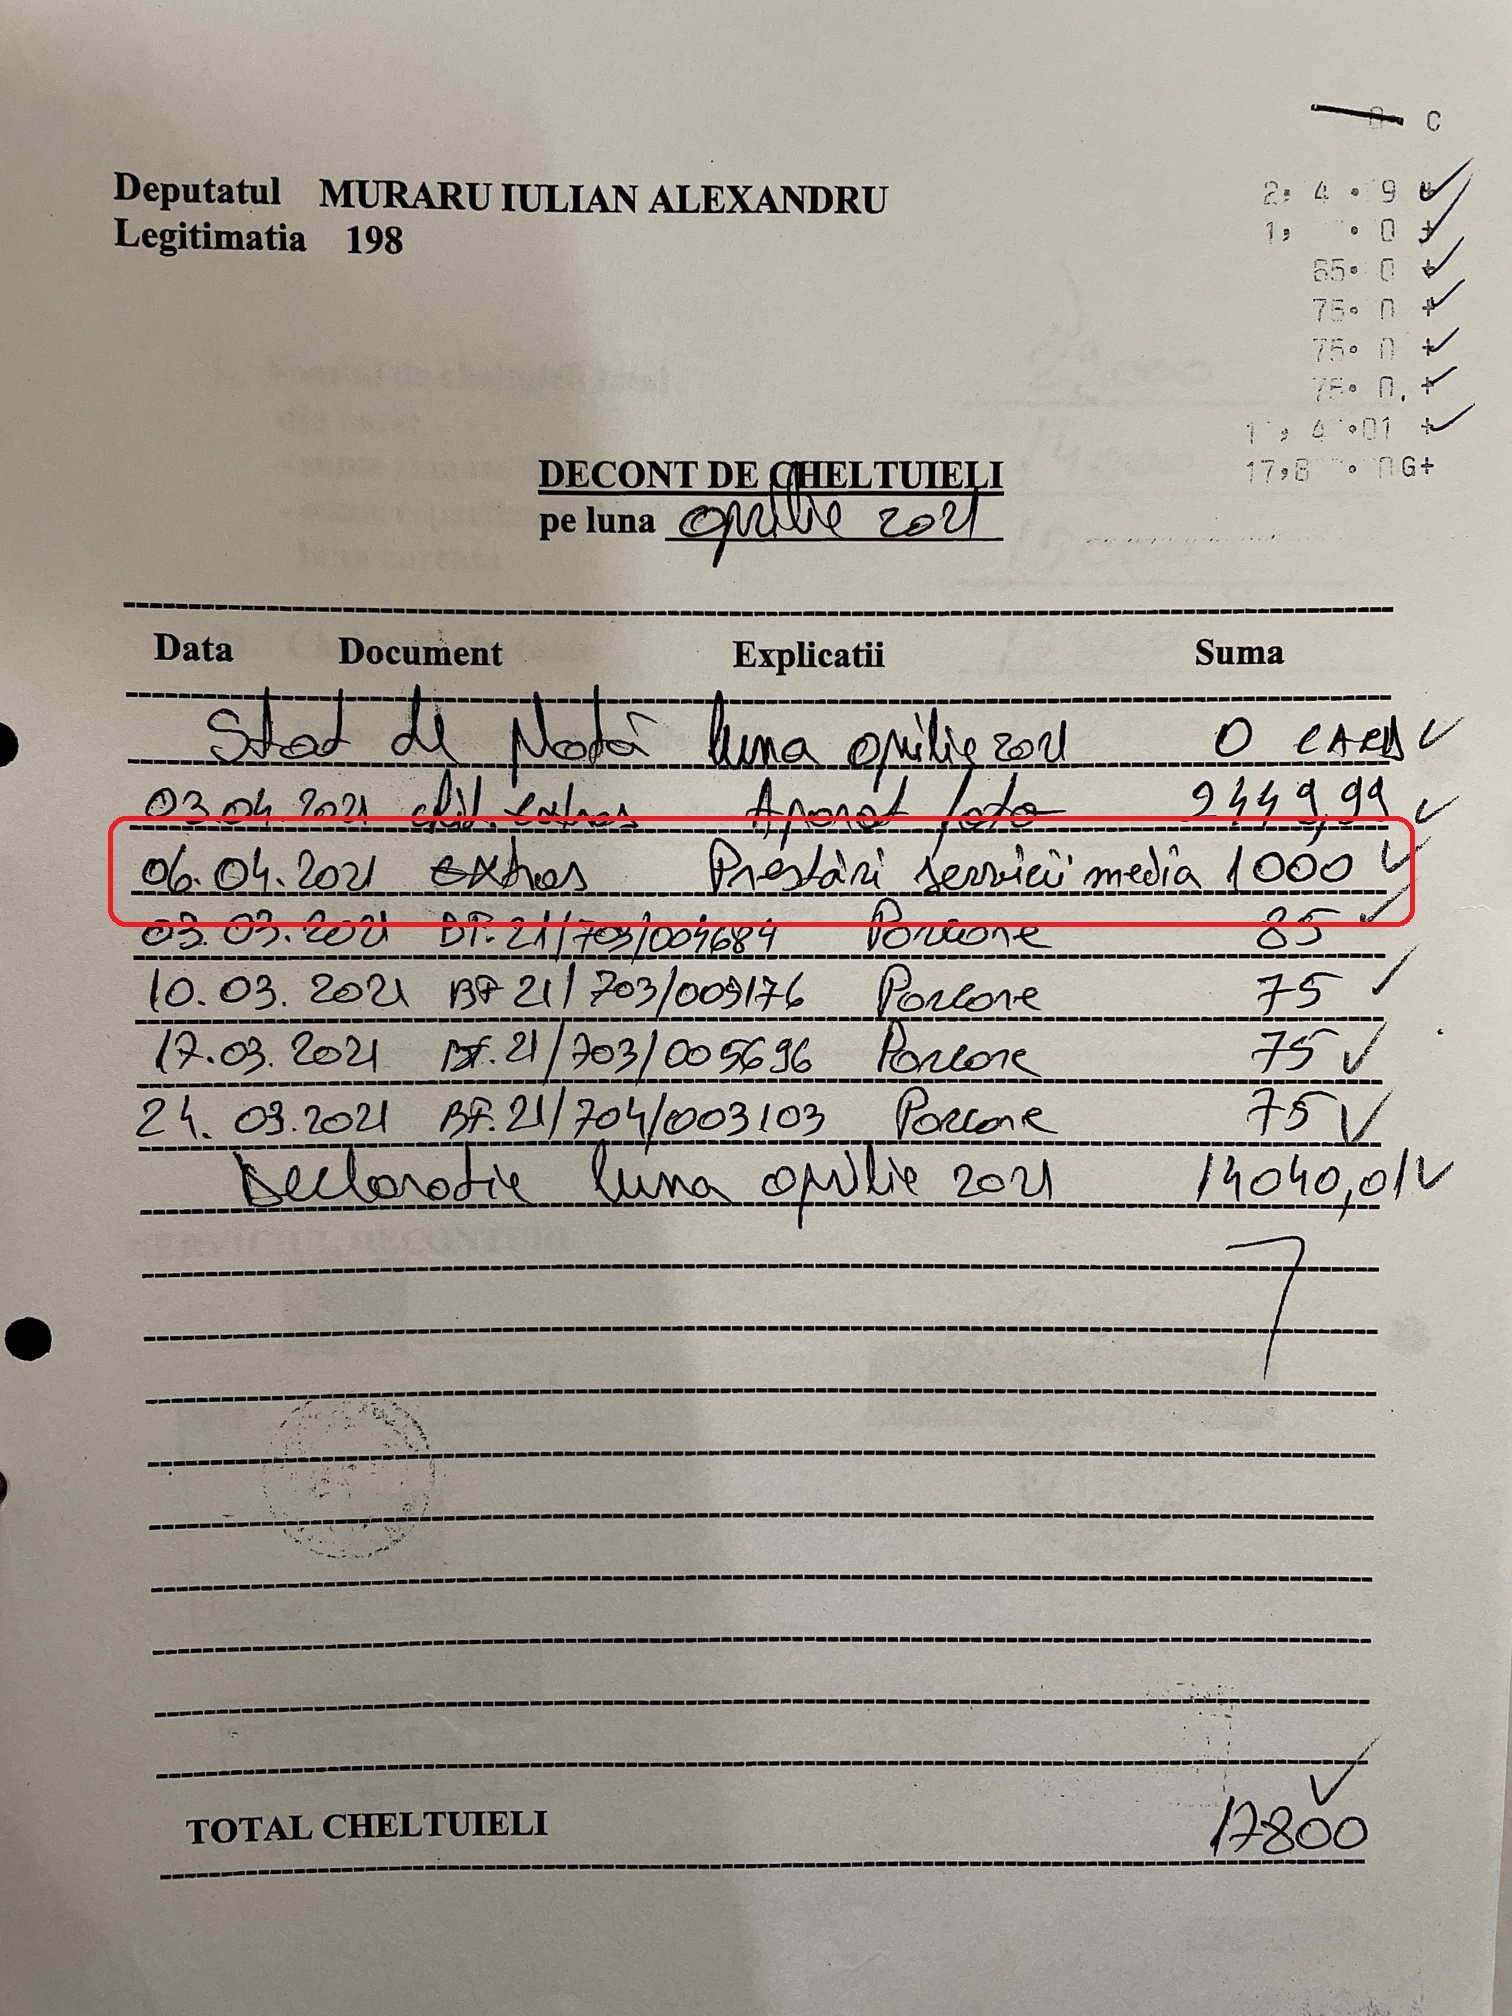 C
Deputatul MURARU IULIAN ALEXANDRU
Legitimatia 198
75. 0 +
75. 0 +
DECONT DE CHELTUIELI
pe luna aprilie 2021
Data Document Explicatii Suma
Stat de plată luna aprilie 2021 0 CARD
03.04.2021 chit. extras Aparat foto 2449,99
06.04.2021 extras Prestări servicii media 1000
03.03.2021 BF. 21/703/004684 Parcare 85
10.03.2021 BF 21/703/005176 Parcare 75
17.03.2021 BF. 21/703/005696 Parcare 75
24.03.2021 BF. 21/704/003103 Parcare 75
Declaratie luna aprilie 2021 14040,01
TOTAL CHELTUIELI 17800